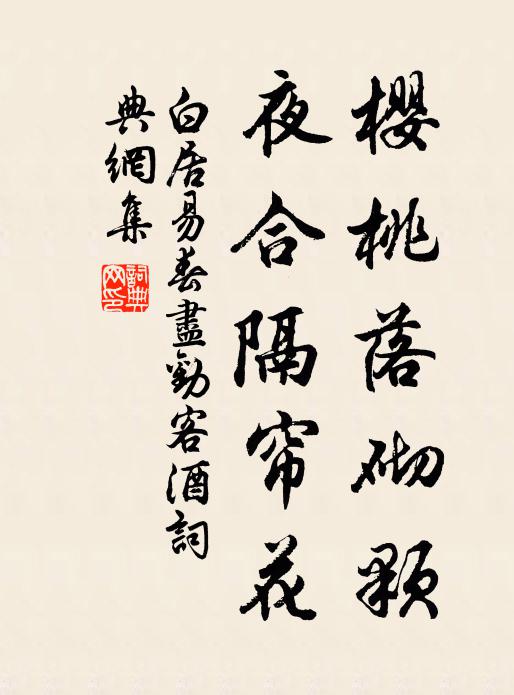 櫻桃落砌顆
夜合隔帘花
白居易春盡勸客酒詞
典網集
詞典網印